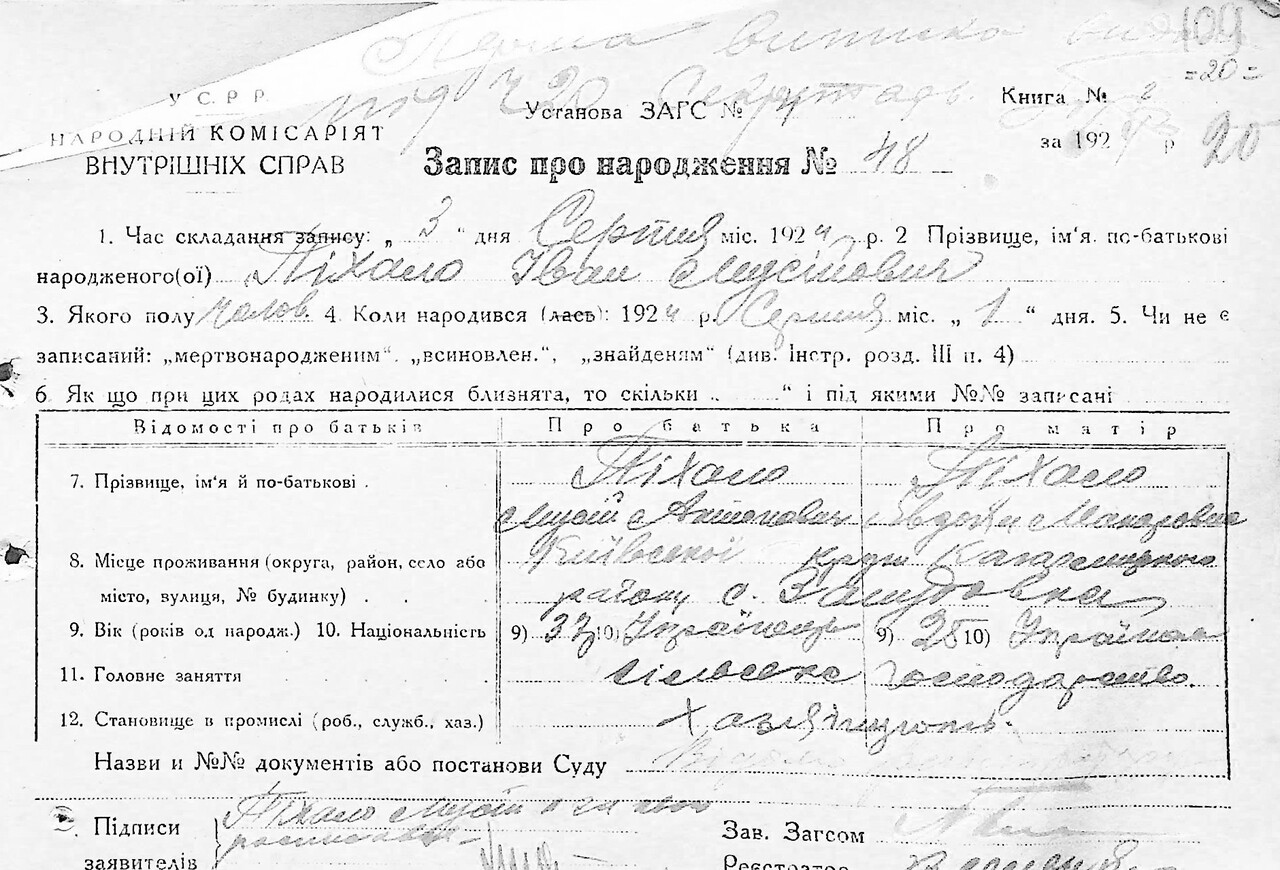 Перша виписка
109
=20=
У С. Р. Р.
НАРОДНІЙ КОМІСАРІЯТ
ВНУТРІШНІХ СПРАВ
Установа ЗАГС №
Книга № 2
за 192 р
20
Запис про народження № 48
1. Час складання запису: „ 3 “ дня Серпня міс. 1924 р. 2 Прізвище, ім'я по-батькові
народженого(ої) Піхало Іван Мусійович
3. Якого полу чолов. 4. Коли народився (лась): 1924 р. Серпня міс. „ 1 “ дня. 5. Чи не є
записаний: „мертвонародженим“. „всиновлен.“, „знайденям“ (див. Інстр. розд. III п. 4)
6. Як що при цих родах народилися близнята, то скільки „ “ і під якими №№ записані
Відомості про батьків Про батька Про матір
7. Прізвище, ім'я й по-батькові . Піхало Піхало
Мусій Антонович Євдокія Макаровна
8. Місце проживання (округа, район, село або Київської округи Кагарлицького
місто, вулиця, № будинку) . . району с.
9. Вік (років од народж.) 10. Національність 9) 33 10) Українець 9) 25 10) Українка
11. Головне заняття . . . . сільське господарство
12. Становище в промислі (роб., служб., хаз.)
Назви и №№ документів або постанови Суду
Підписи
заявителів
Піхало Мусій а за його
росписався
Зав. Загсом
Реєстратор